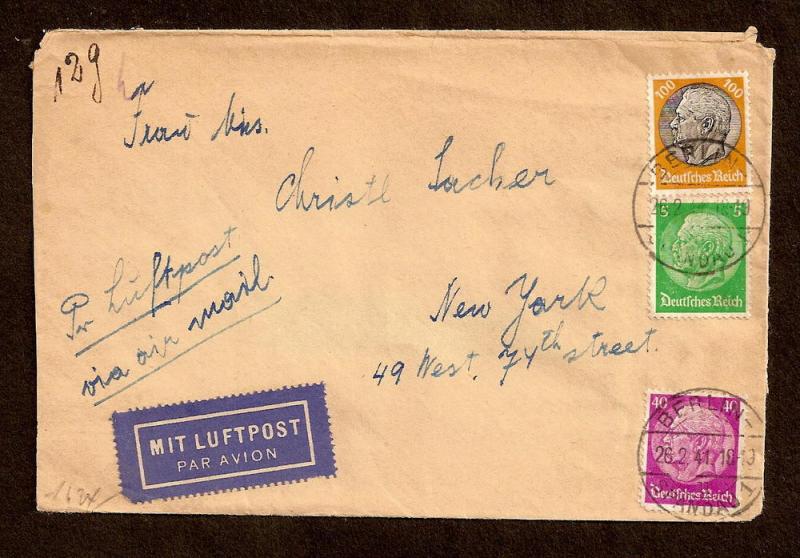 12g
Frau Mrs.
Christl Lacher
Per Luftpost
via air mail.
New York
49 West. 74th street.
MIT LUFTPOST
PAR AVION
100 100
Deutsches Reich
BERLIN
26.2
SPANDAU
5 5
Deutsches Reich
40 40
Deutsches Reich
BERLIN-
26.2.41.18-19
SPANDAU 1